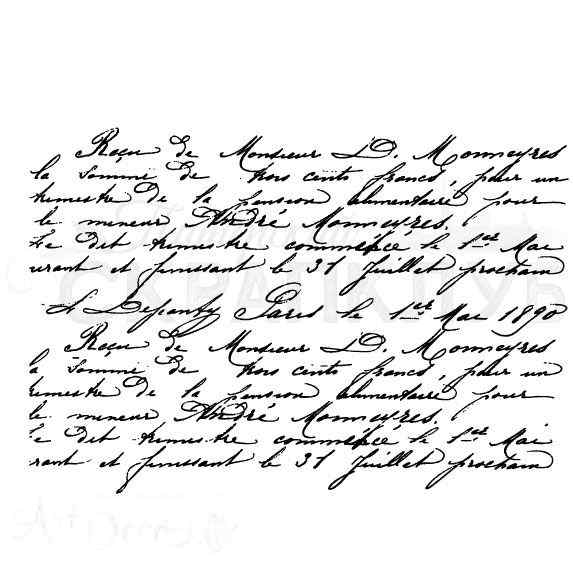 Reçu de Monsieur D. Monneyres
la Somme de trois cents francs, pour un
trimestre de la pension alimentaire pour
le mineur André Monneyres.
Le dit trimestre commencé le 1er Mai
urant et finissant le 31 Juillet prochain
Paris le 1er Mai 1890
Reçu de Monsieur D. Monneyres
la Somme de trois cents francs, pour un
rimestre de la pension alimentaire pour
le mineur André Monneyres.
Le dit trimestre commencé le 1er Mai
rant et finissant le 31 Juillet prochain
СКРАПКЛУБ